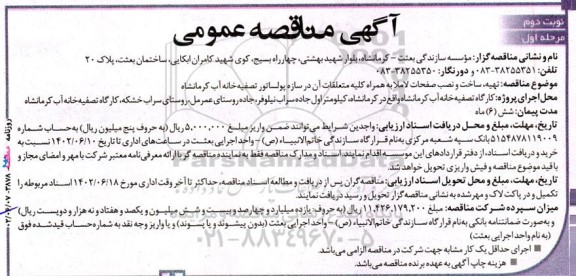 نوبت دوم
مرحله اول
آگهی مناقصه عمومی
نام و نشانی مناقصه گزار: مؤسسه سازندگی بعثت – کرمانشاه، بلوار شهید بهشتی، چهارراه بسیج، کوی شهید کامران ابکایی، ساختمان بعثت، پلاک ۲۰
تلفن: ۳۸۲۵۵۳۵۱-۰۸۳ و دورنگار: ۳۸۲۵۵۳۵۰-۰۸۳
موضوع مناقصه: تهیه، ساخت و نصب صفحات لاملا به همراه کلیه متعلقات آن در سازه پولساتور تصفیه خانه آب کرمانشاه
محل اجرای پروژه: کارگاه تصفیه خانه آب کرمانشاه واقع در کرمانشاه، کیلومتر اول جاده سراب نیلوفر، جاده روستای عمرمل، روستای سراب خشکه، کارگاه تصفیه خانه آب کرمانشاه
مدت پیمان: شش (۶) ماه
تاریخ، مهلت، مبلغ و محل دریافت اسناد ارزیابی: واجدین شرایط می‌توانند ضمن واریز مبلغ ۵,۰۰۰,۰۰۰ ریال (به حروف پنج میلیون ریال) به حساب شماره
۵۱۵۴۸۷۸۱۱۹۰۰۹ بانک سپه شعبه مرکزی به نام قرارگاه سازندگی خاتم الانبیاء (ص) – واحد اجرایی بعثت در ساعت‌های اداری تا تاریخ ۱۴۰۲/۰۶/۱۰ نسبت به
خرید و دریافت اسناد، از دفتر قراردادهای این موسسه اقدام نمایند. اسناد و مدارک مناقصه فقط به نماینده مناقصه گر با ارائه معرفی نامه معتبر شرکت با مهر و امضای مجاز و
با قید موضوع مناقصه و فیش واریزی تحویل خواهد شد.
تاریخ، مهلت، مبلغ و محل تحویل اسناد ارزیابی: مناقصه گران پس از دریافت و مطالعه اسناد مناقصه، حداکثر تا آخر وقت اداری مورخ ۱۴۰۲/۰۶/۱۸ اسناد مربوطه را
تکمیل و در پاکت لاک و مهر شده به نشانی مناقصه گزار تحویل و رسید دریافت نمایند.
میزان سپرده شرکت در مناقصه: مبلغ ۱۱,۴۲۶,۱۷۹,۲۰۰ ریال (به حروف یازده میلیارد و چهارصد و بیست و شش میلیون و یکصد و هفتاد و نه هزار و دویست ریال)
و به صورت ضمانتنامه بانکی به نام قرارگاه سازندگی خاتم الانبیاء (ص) – واحد اجرایی بعثت (بدون پیشوند و یا پسوند) و یا واریز وجه نقد به شماره حساب قید شده فوق
(به نام واحد اجرایی بعثت)
■ اجرای حداقل یک کار مشابه جهت شرکت در مناقصه الزامی می‌باشد.
■ هزینه چاپ آگهی به عهده برنده مناقصه می‌باشد.
۰۲۱-۸۸۳۴۹۶۷۰-۵